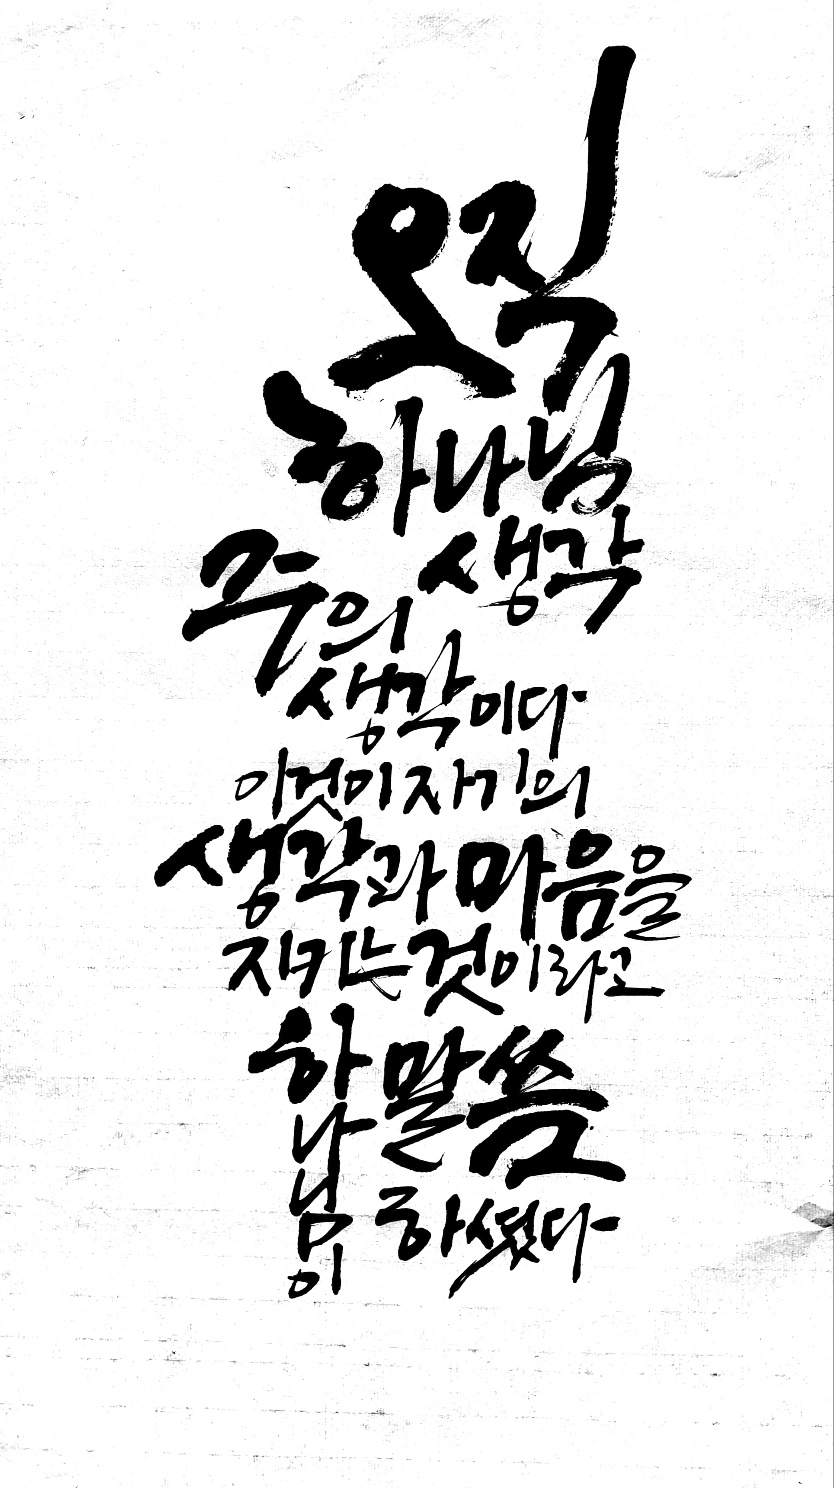 오직
하나님
생각
주의
생각이다
이것이 자기의
생각과 마음을
지키는 것이라고
하나님이
말씀
하셨다